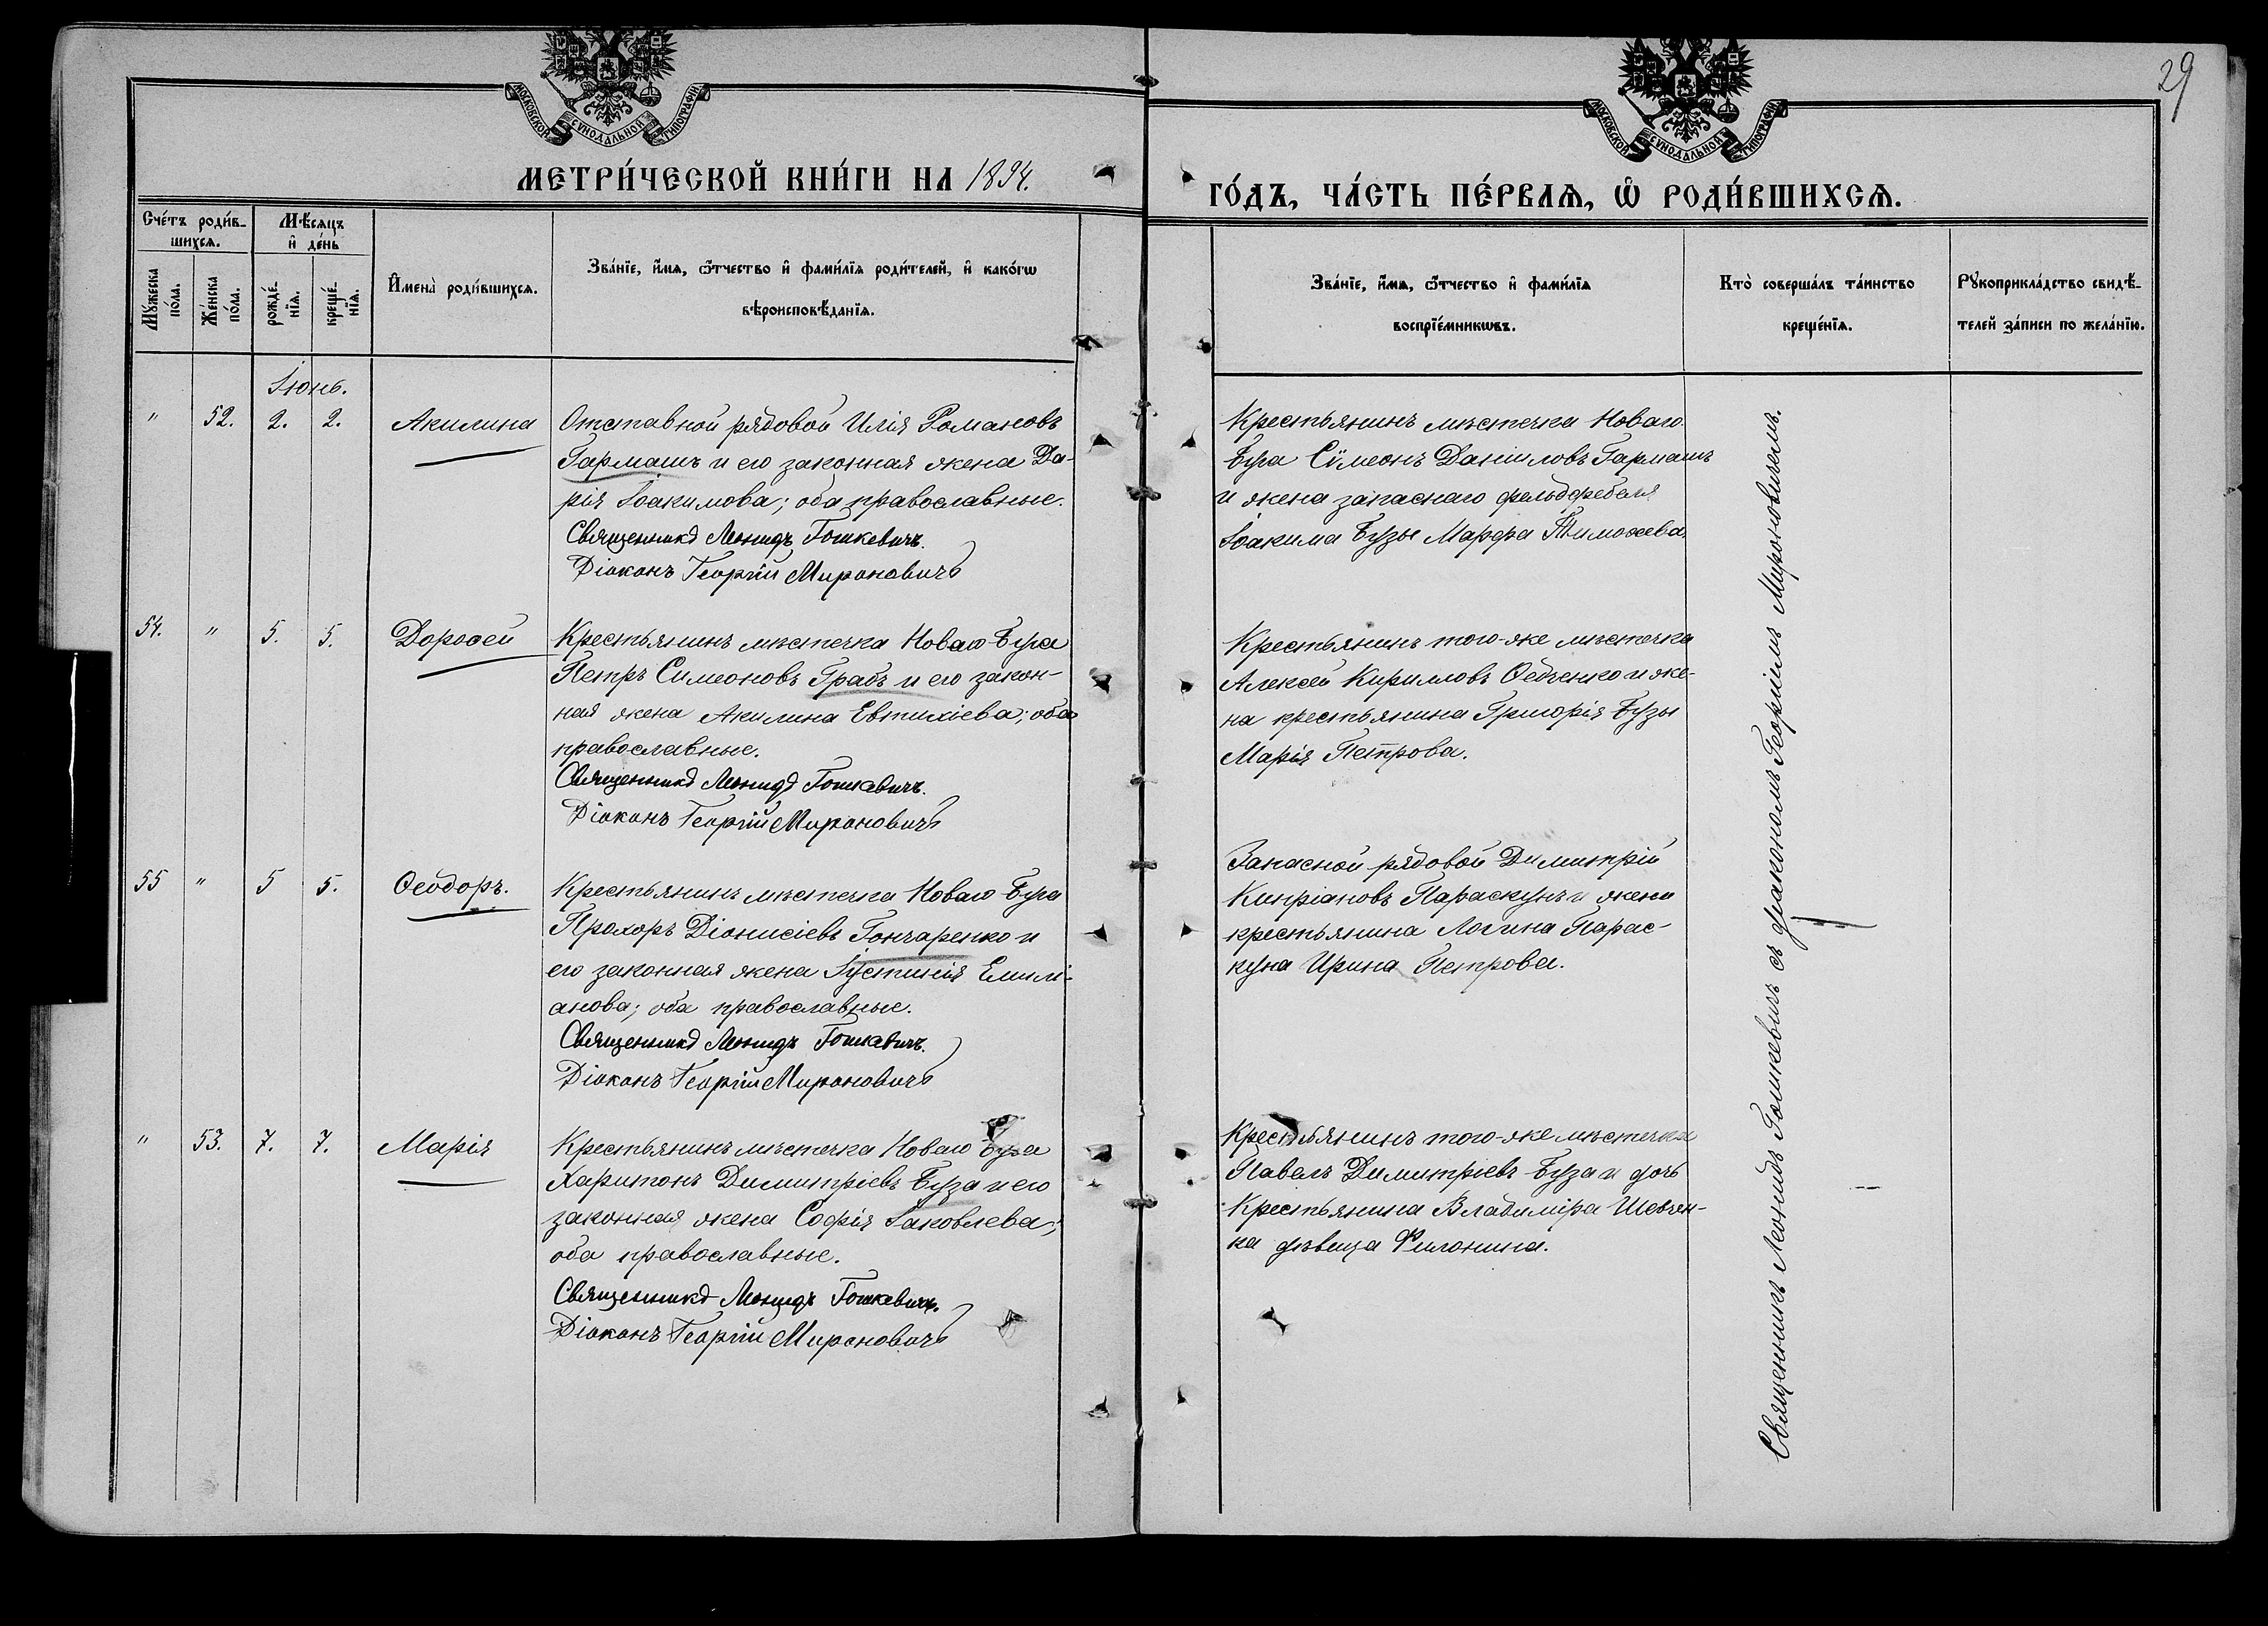 29
МОСКОВСКОЙ СѴНОДАЛЬНОЙ ТИПОГРАФІИ
МОСКОВСКОЙ СѴНОДАЛЬНОЙ ТИПОГРАФІИ
МЕТРИ́ЧЕСКОЙ КНИ́ГИ НА 1894.
ГО́ДЪ, ЧА́СТЬ ПЕ́РВАѦ, Ѡ҆ РОДИ́ВШИХСѦ.
Сче́тъ роди́в-
шихсѧ.
Мѣ́сѧцъ
и҆ де́нь
Мꙋ́жеска
по́ла.
Же́нска
по́ла.
рожде́-
нїѧ.
креще́-
нїѧ.
И҆мена̀ роди́вшихсѧ.
Зва́нїе, и҆́мѧ, ѻ҆́тчество и҆ фами́лїѧ роди́телей, и҆ како́гѡ
вѣроисповѣ́данїѧ.
Зва́нїе, и҆́мѧ, ѻ҆́тчество и҆ фами́лїѧ
воспрїе́мникѡвъ.
Кто̀ соверша́лъ та́инство
креще́нїѧ.
Рꙋкоприкла́дство свидѣ́-
телей за́писи по жела́нїю.
Іюнь.
" 52. 2. 2. Акилина
Отставной рядовой Илія Романовъ
Гармашъ и его законная жена Да-
рія Іоакимова; оба православные.
Священникъ Леонидъ Гошкевичъ.
Діаконъ Георгій Мироновичъ
Крестьянинъ мѣстечка Новаго
Буга Сѵмеонъ Даніиловъ Гармашъ
и жена запаснаго фельдфебеля
Іоакима Бузы Марфа Тимоѳеева.
54. " 5. 5. Дороѳей
Крестьянинъ мѣстечка Новаго Буга
Петръ Симеоновъ Грабъ и его закон-
ная жена Акилина Евтихіева; оба
православные.
Священникъ Леонидъ Гошкевичъ.
Діаконъ Георгій Мироновичъ
Крестьянинъ того-же мѣстечка
Алексей Кирилловъ Ѳедченко и же-
на крестьянина Григорія Бузы
Марія Петрова.
55 " 5 5. Ѳеодоръ.
Крестьянинъ мѣстечка Новаго Буга
Прохоръ Діонисіевъ Гончаренко и
его законная жена Іустинія Емилі-
анова; оба православные.
Священникъ Леонидъ Гошкевичъ.
Діаконъ Георгій Мироновичъ
Запасной рядовой Димитрій
Кипріановъ Параскунъ и жена
крестьянина Логина Парас-
куна Ирина Петрова.
" 53. 7. 7. Марія
Крестьянинъ мѣстечка Новаго Буга
Харитонъ Димитріевъ Буза и его
законная жена Софія Іаковлева;
оба православные.
Священникъ Леонидъ Гошкевичъ.
Діаконъ Георгій Мироновичъ
Крестьянинъ того-же мѣстечка
Павелъ Димитріевъ Буза и дочь
Крестьянина Владиміра Шевчен-
ка дѣвица Филонина.
Священникъ Леонидъ Гошкевичъ съ діакономъ Георгіемъ Мироновичемъ.